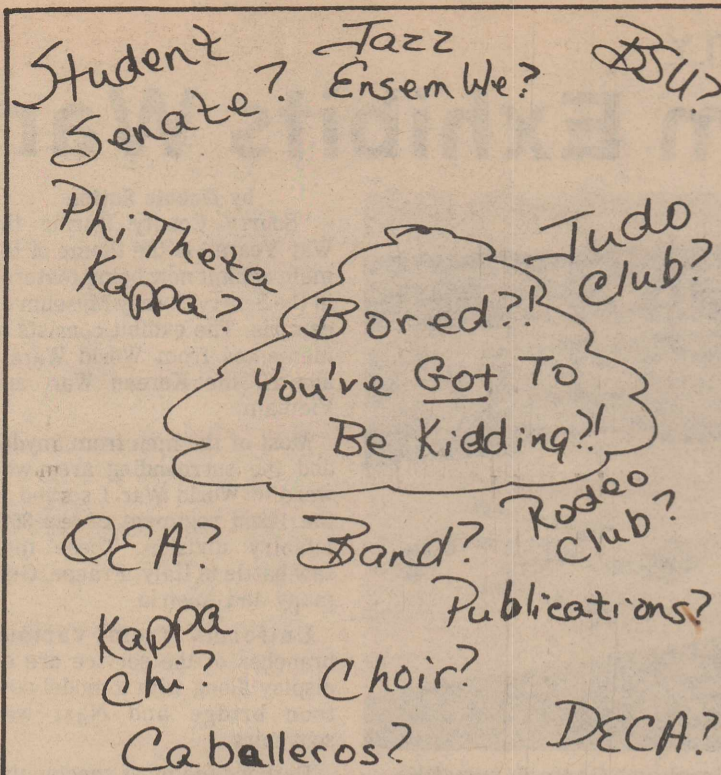 Student
Senate?
Jazz
Ensemble?
BSU?
Phi Theta
Kappa?
Judo
Club?
Bored?!
You've Got To
Be Kidding?!
OEA?
Band?
Rodeo
Club?
Publications?
Kappa
Chi?
Choir?
Caballeros?
DECA?